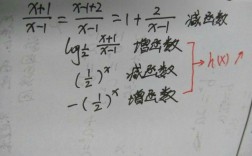 x+1/x-1 = x-1+2/x-1 = 1 + 2/x-1 减函数
log½ x+1/x-1 增函数
(½)ˣ 减函数
-(½)ˣ 增函数
→h(x)↗